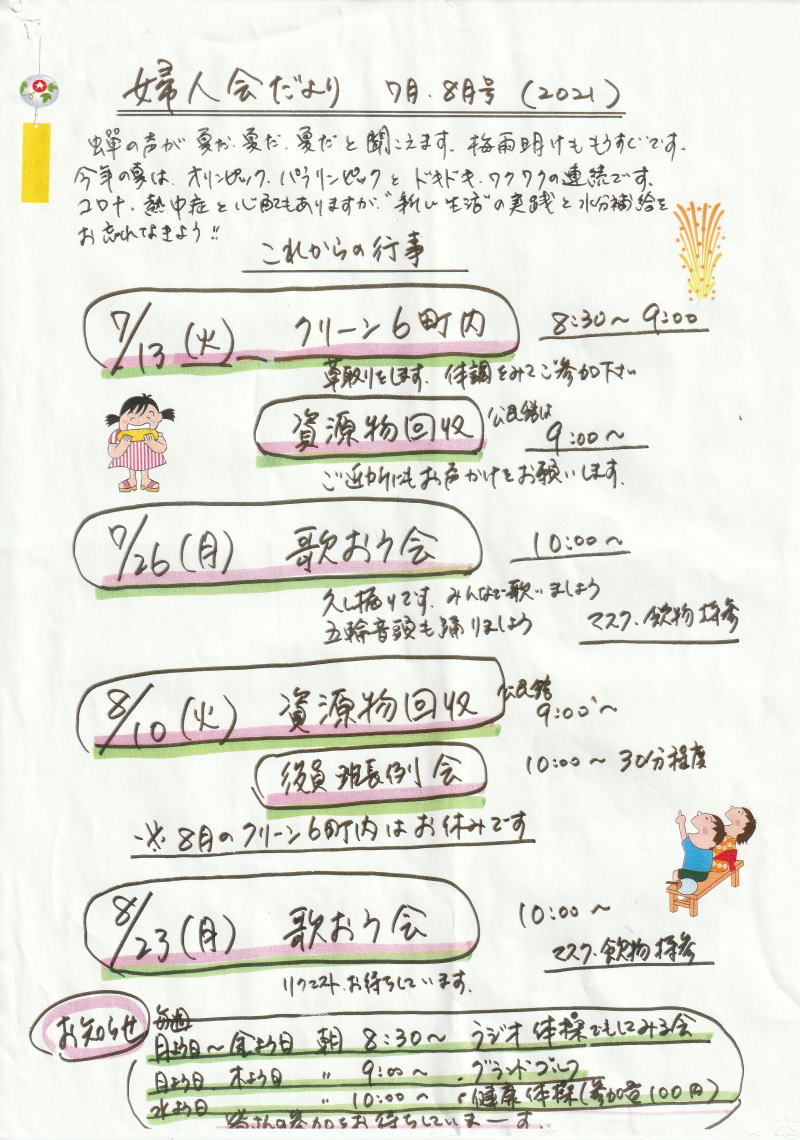 婦人会だより 7月.8月号 (2021)
蝉の声が 夏だ.夏だ.夏だと聞こえます。梅雨明けももうすぐです。
今年の夏は、オリンピック、パラリンピックと ドキドキ、ワクワクの連続です。
コロナ、熱中症と心配もありますが、"新しい生活"の実践と水分補給を
お忘れなきよう!!
これからの行事
7/13(火) クリーン6町内 8:30〜9:00
草取りをします。体調をみてご参加下さい
資源物回収 公民館は 9:00〜
ご近所にもお声かけをお願いします。
7/26(月) 歌おう会 10:00〜
久し振りです。みんなで歌いましょう
五輪音頭も踊りましょう マスク、飲物持参
8/10(火) 資源物回収 公民館 9:00〜
役員班長例会 10:00〜30分程度
※8月のクリーン6町内はお休みです
8/23(月) 歌おう会 10:00〜
マスク、飲物持参
リクエストお待ちしています。
お知らせ
毎週
月よう日〜金よう日 朝 8:30〜 ラジオ体操でもしてみる会
月よう日、木よう日 〃 9:00〜 .グランドゴルフ
水よう日 〃 10:00〜 健康体操(参加費100円)
皆さんの参加をお待ちしていまーす.